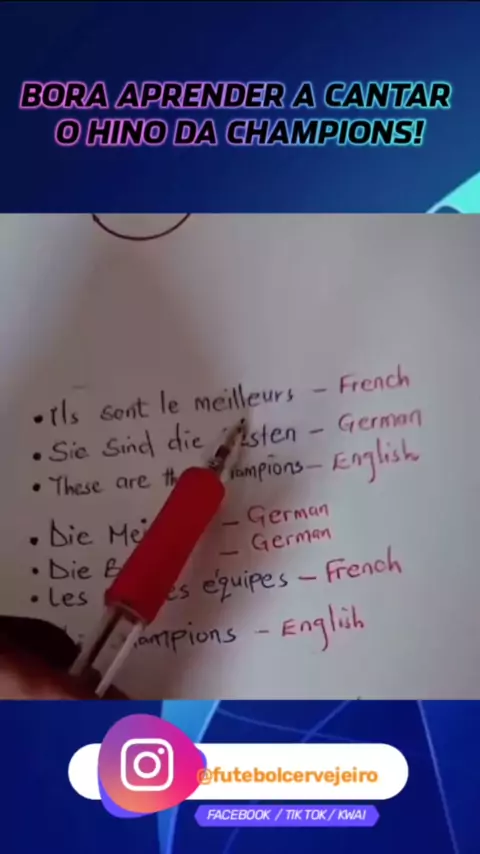 BORA APRENDER A CANTAR
O HINO DA CHAMPIONS!
• Ils sont le meilleurs – French
• Sie Sind die – German
• These are – English
• Die – German
• Die – German
• Les équipes – French
– English
@futebolcervejeiro
FACEBOOK / TIK TOK / KWAI